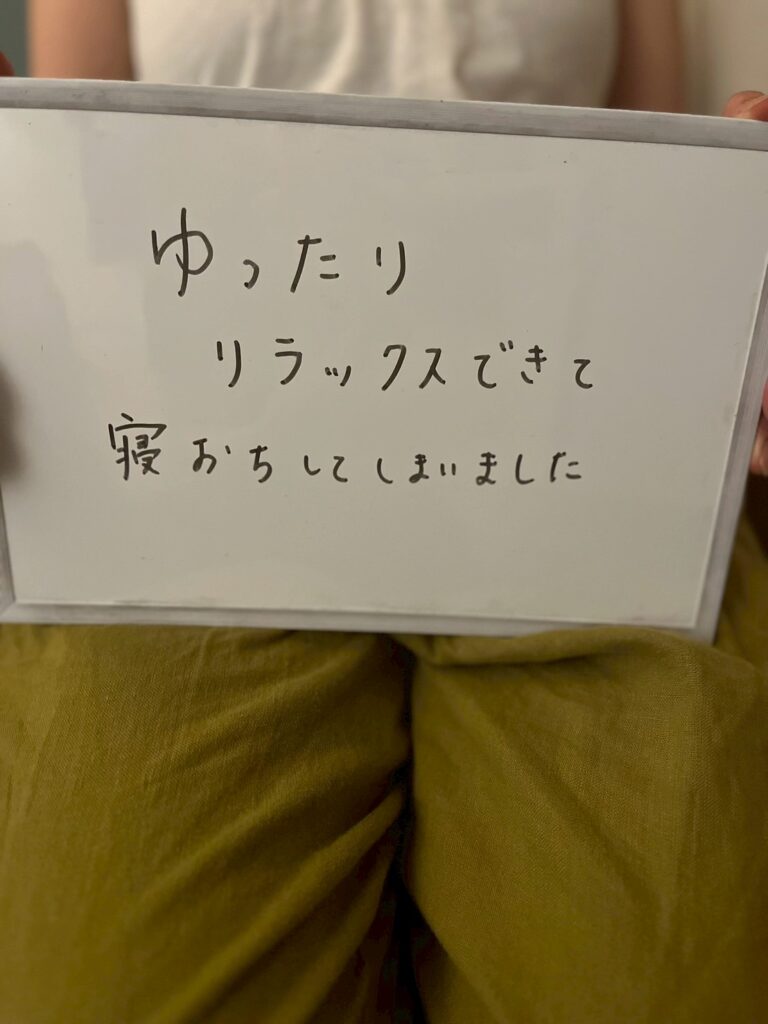 ゆったり
リラックスできて
寝おちしてしまいました